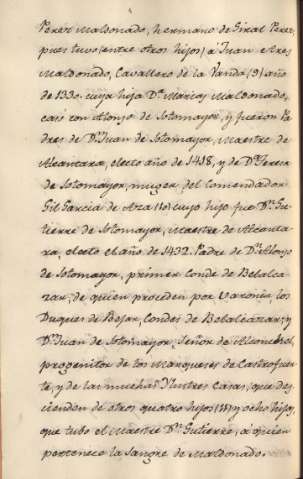 Perez Maldonado, hermano de Giral Perez
pues tuvo (entre otros hijos) a Juan Perez
Maldonado, Cavallero de la Vanda (9) año
de 1330. cuya hija Dª Maria Maldonado,
casó con Alonso de Sotomayor, y fueron Pa
dres de Dn. Juan de Sotomayor, Maestre de
Alcantara, electo año de 1418, y de Dª Teresa
de Sotomayor, muger del Comendador
Gil Garcia de Aza (10) cuyo hijo fue Dn. Gu
tierre de Sotomayor, Maestre de Alcanta
ra, electo el año de 1432. Padre de Dn. Alonso
de Sotomayor, primer Conde de Belalca
zar, de quien proceden por Varonia los
Duques de Bejar, Condes de Belalcazar; y
Dn. Juan de Sotomayor, Señor de Alconchel,
progenitor de los Marqueses de Castrofuer
te, y de las muchas Ylustres Casas, que des
cienden de otros quatro hijos (11) y ocho hijas,
que tubo el Maestre Dn. Gutierre, a quien
pertenece la Sangre de Maldonado.